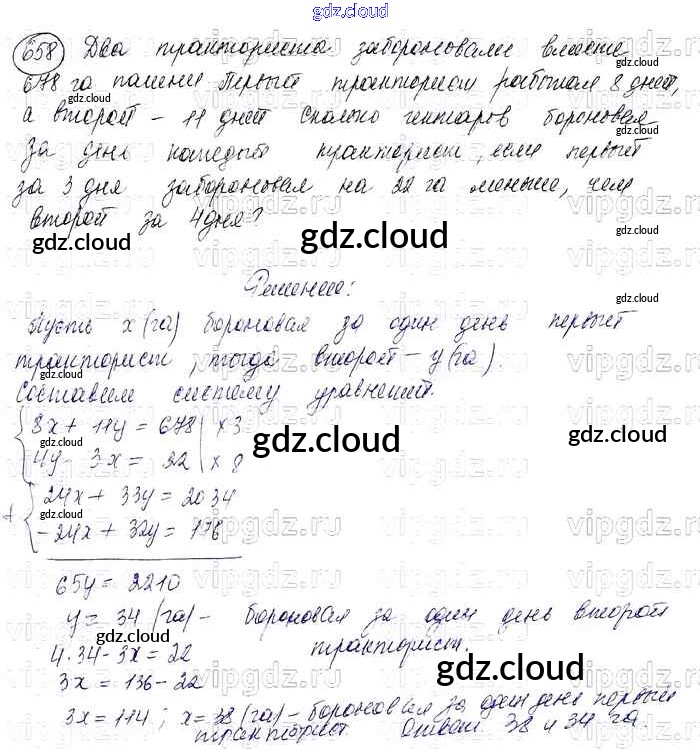 gdz.cloud
658 Два тракториста забороновали вместе
678 га пашни. Первый тракторист работал 8 дней,
а второй - 11 дней. Сколько гектаров бороновал
за день каждый тракторист, если первый
за 3 дня забороновал на 22 га меньше, чем
второй за 4 дня?
gdz.cloud
Решение:
Пусть x (га) бороновал за один день первый
тракторист, тогда второй - y (га).
Составим систему уравнений.
8x + 11y = 678 | x 3
4y - 3x = 22 | x 8
gdz.cloud
+ 24x + 33y = 2034
- 24x + 32y = 176
65y = 2210
y = 34 (га) - бороновал за один день второй
тракторист.
4·34 - 3x = 22
3x = 136 - 22
gdz.cloud
3x = 114; x = 38 (га) - бороновал за один день первый
тракторист. Ответ: 38 и 34 га.
vipgdz.ru